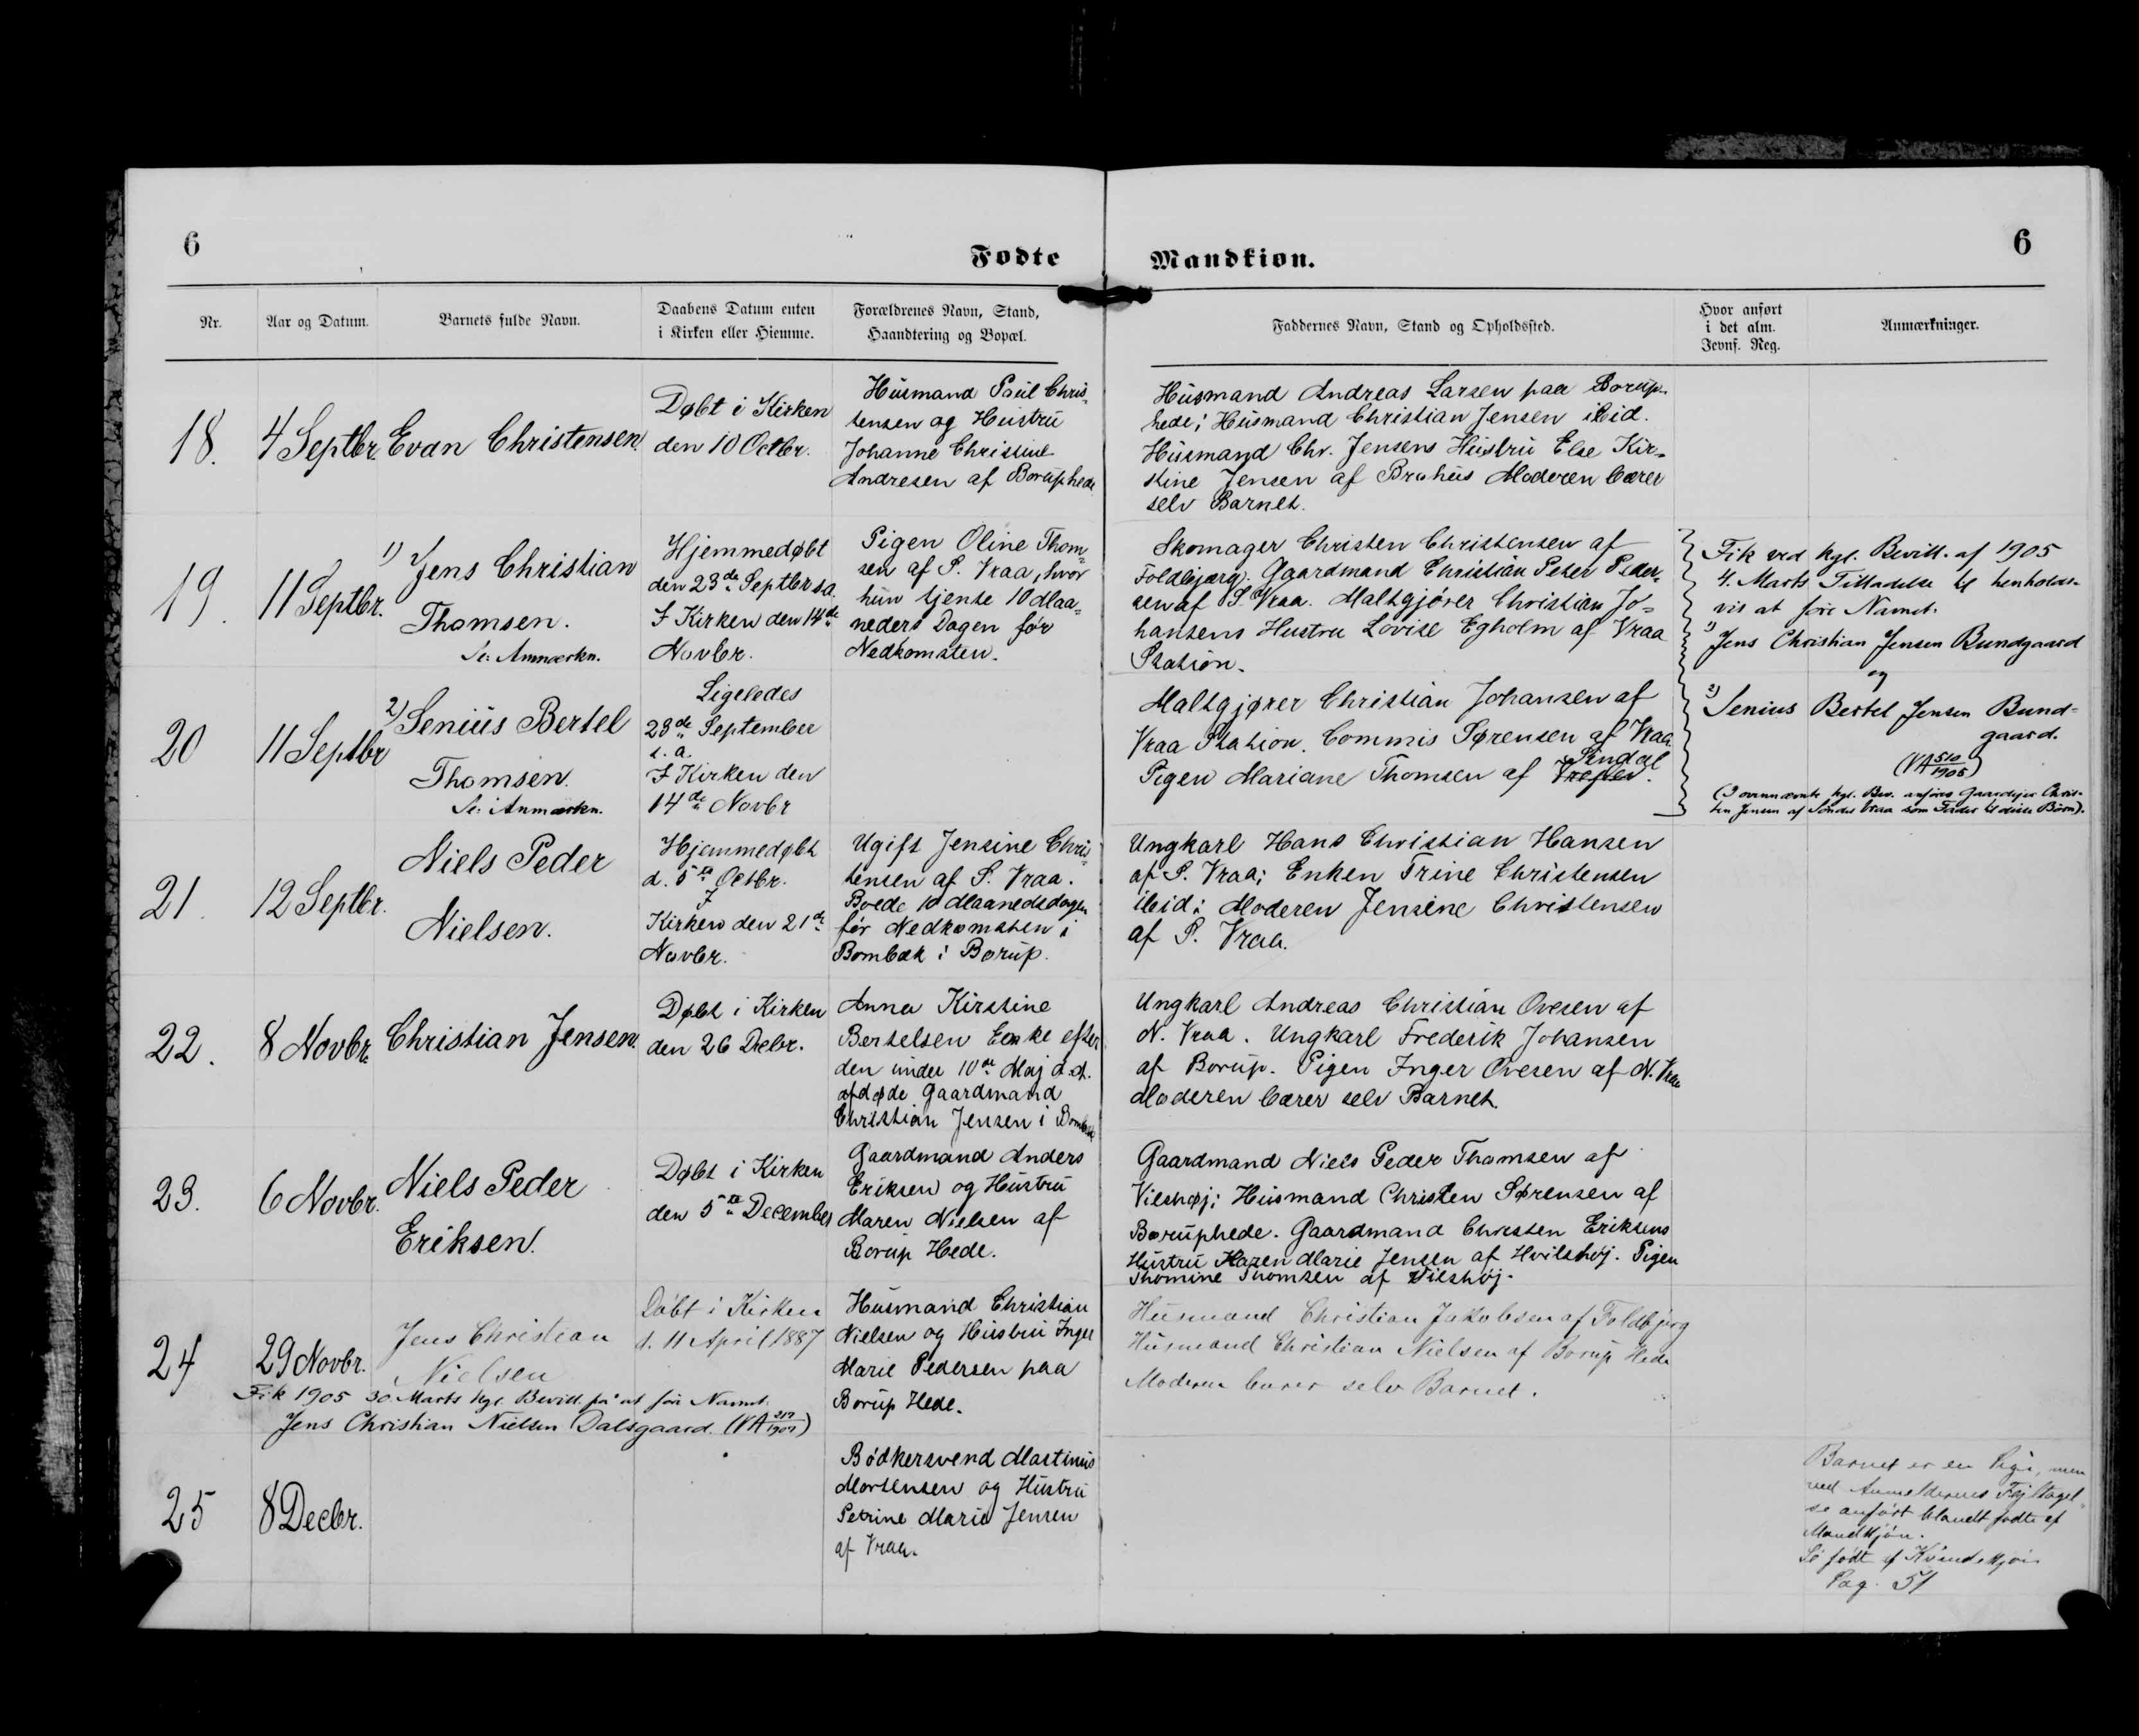 6
Fødte
Mandkiøn.
6
Nr.
Aar og Datum.
Barnets fulde Navn.
Daabens Datum enten
i Kirken eller Hiemme.
Forældrenes Navn, Stand,
Haandtering og Bopæl.
Faddernes Navn, Stand og Opholdssted.
Hvor anført
i det alm.
Jevnf. Reg.
Anmærkninger.
18.
4 Septbr.
Evan Christensen.
Døbt i Kirken
den 10 Octbr.
Husmand Paul Chris-
tensen og Hustru
Johanne Christine
Andresen af Boruphede
Husmand Andreas Larsen paa Borup-
hede; Husmand Christian Jensen ibid.
Husmand Chr. Jensens Hustru Else Kir-
stine Jensen af Brohus Moderen bærer
selv Barnet.
19.
11 Septbr.
1) Jens Christian
Thomsen.
Se: Anmærkn.
Hjemmedøbt
den 23de Septbr s.a.
I Kirken den 14de
Novbr.
Pigen Oline Thom-
sen af S. Vraa, hvor
hun tjente 10 Maa-
neders Dagen før
Nedkomsten.
Skomager Christen Christensen af
Foldbjærg. Gaardmand Christian Peter Peder-
sen af S. Vraa. Maltgjører Christian Jo-
hansens Hustru Lovise Egholm af Vraa
Station.
Fik ved kgl. Bevill. af 1905
4. Marts Tilladelse til henholds-
vis at føre Navnet.
1) Jens Christian Jensen Bundgaard
og
20
11 Septbr
2) Senius Bertel
Thomsen.
Se: Anmærkn.
Ligeledes
23de September
s. a.
I Kirken den
14de Novbr
Maltgjører Christian Johansen af
Vraa Station. Commis Sørensen af Vraa.
Sindal
Pigen Mariane Thomsen af Vrejlev.
2) Senius Bertel Jensen Bund-
gaard.
(VA 510/1905)
(I ovennævnte kgl. Bev. anføres Gaardejer Chris-
ten Jensen af Sønder Vraa som Fader til disse Børn).
21.
12 Septbr.
Niels Peder
Nielsen.
Hjemmedøbt
d. 5te Octbr.
I
Kirken den 21de
Novbr.
Ugift Jensine Chris-
tensen af S. Vraa.
Boede 10 Maanedsdagen
før Nedkomsten i
Bombæk i Borup.
Ungkarl Hans Christian Hansen
af S. Vraa; Enken Trine Christensen
ibid; Moderen Jensine Christensen
af S. Vraa.
22.
8 Novbr.
Christian Jensen.
Døbt i Kirken
den 26 Decbr.
Anna Kirstine
Bertelsen Enke efter
den under 10de Maj d.A.
afdøde Gaardmand
Christian Jensen i Bombæk
Ungkarl Andreas Christian Ovesen af
N. Vraa. Ungkarl Frederik Johansen
af Borup. Pigen Inger Ovesen af N. Vraa
Moderen bærer selv Barnet.
23.
6 Novbr.
Niels Peder
Eriksen.
Døbt i Kirken
den 5te December
Gaardmand Anders
Eriksen og Hustru
Maren Nielsen af
Borup Hede.
Gaardmand Niels Peder Thomsen af
Vilshøj; Husmand Christen Sørensen af
Boruphede. Gaardmand Christen Eriksens
Hustru Karen Marie Jensen af Hvilshøj. Pigen
Thomine Thomsen af Vilshøj.
24
29 Novbr.
Jens Christian
Nielsen
Døbt i Kirken
d. 11 April 1887
Husmand Christian
Nielsen og Hustru Inger
Marie Pedersen paa
Borup Hede.
Husmand Christian Jakobsen af Foldbjerg
Husmand Christian Nielsen af Borup Hede
Moderen bærer selv Barnet.
Fik 1905 30 Marts kgl. Bevill. på at føre Navnet
Jens Christian Nielsen Dalsgaard.
25
8 Decbr.
Bødkersvend Martinus
Mortensen og Hustru
Petrine Marie Jensen
af Vraa.
Barnet er en Pige, men
ved Anmeldernes Fejltagel-
se anført blandt fødte af
Mandkjøn.
Se født af Kvindekjøn
Pag. 51